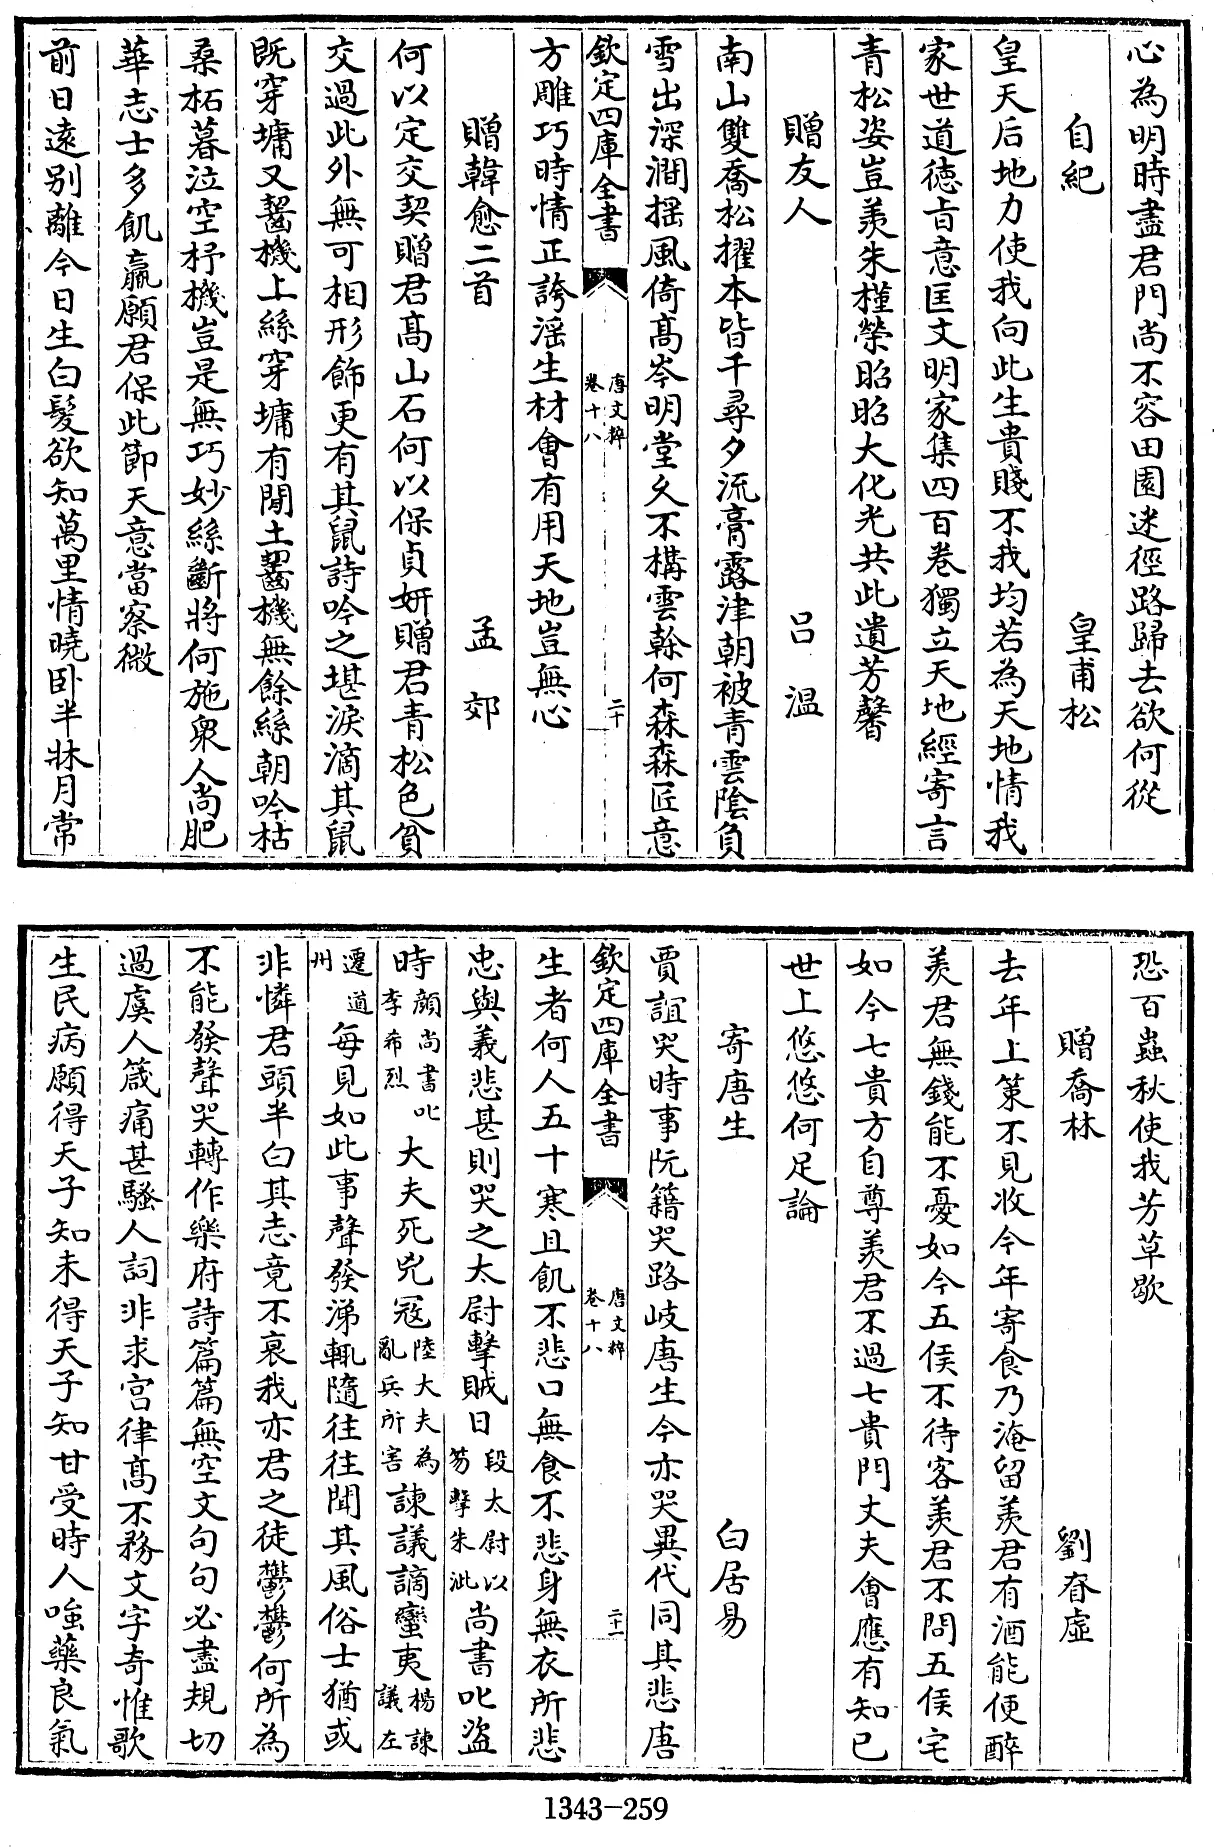 心為明時盡君門尚不容田園迷徑路歸去欲何從
自紀　皇甫松
皇天后地力使我向此生貴賤不我均若為天地情我
家世道徳㫖意匡文明家集四百卷獨立天地經寄言
青松姿豈羡朱槿榮昭昭大化光共此遺芳馨
贈友人　吕温
南山雙喬松擢本皆千尋夕流膏露津朝被青雲隂負
雪出深澗揺風倚髙岑明堂乆不構雲幹何森森匠意
欽定四庫全書
唐文粹
卷十八
二十
方雕巧時情正誇淫生材㑹有用天地豈無心
贈韓愈二首　孟郊
何以定交契贈君髙山石何以保貞妍贈君青松色貧
交過此外無可相形飾更有其鼠詩吟之堪淚滴其鼠
既穿墉又齧機上絲穿墉有閒土齧機無餘絲朝吟枯
桑柘暮泣空杼機豈是無巧妙絲斷將何施衆人尚肥
華志士多飢羸願君保此節天意當察微
前日逺别離今日生白髪欲知萬里情曉卧半牀月常
恐百蟲秋使我芳草歇
贈喬林　劉昚虚
去年上策不見收今年寄食乃淹留羡君有酒能便醉
羡君無錢能不憂如今五侯不待客羡君不問五侯宅
如今七貴方自尊羡君不過七貴門丈夫㑹應有知已
世上悠悠何足論
寄唐生　白居易
賈誼哭時事阮籍哭路岐唐生今亦哭異代同其悲唐
欽定四庫全書
唐文粹
卷十八
二十一
生者何人五十寒且飢不悲口無食不悲身無衣所悲
忠與義悲甚則哭之太尉擊賊日段太尉以笏擊朱泚尚書叱盗
時顔尚書叱李希烈大夫死兇冦陸大夫為亂兵所害諫議謫蠻夷楊諫議左
遷道州每見如此事聲發涕輒隨往往聞其風俗士猶或
非憐君頭半白其志竟不衰我亦君之徒鬱鬱何所為
不能發聲哭轉作樂府詩篇篇無空文句句必盡規切
過虞人箴痛甚騷人詞非求宫律髙不務文字奇惟歌
生民病願得天子知未得天子知甘受時人嗤藥良氣
1343-259